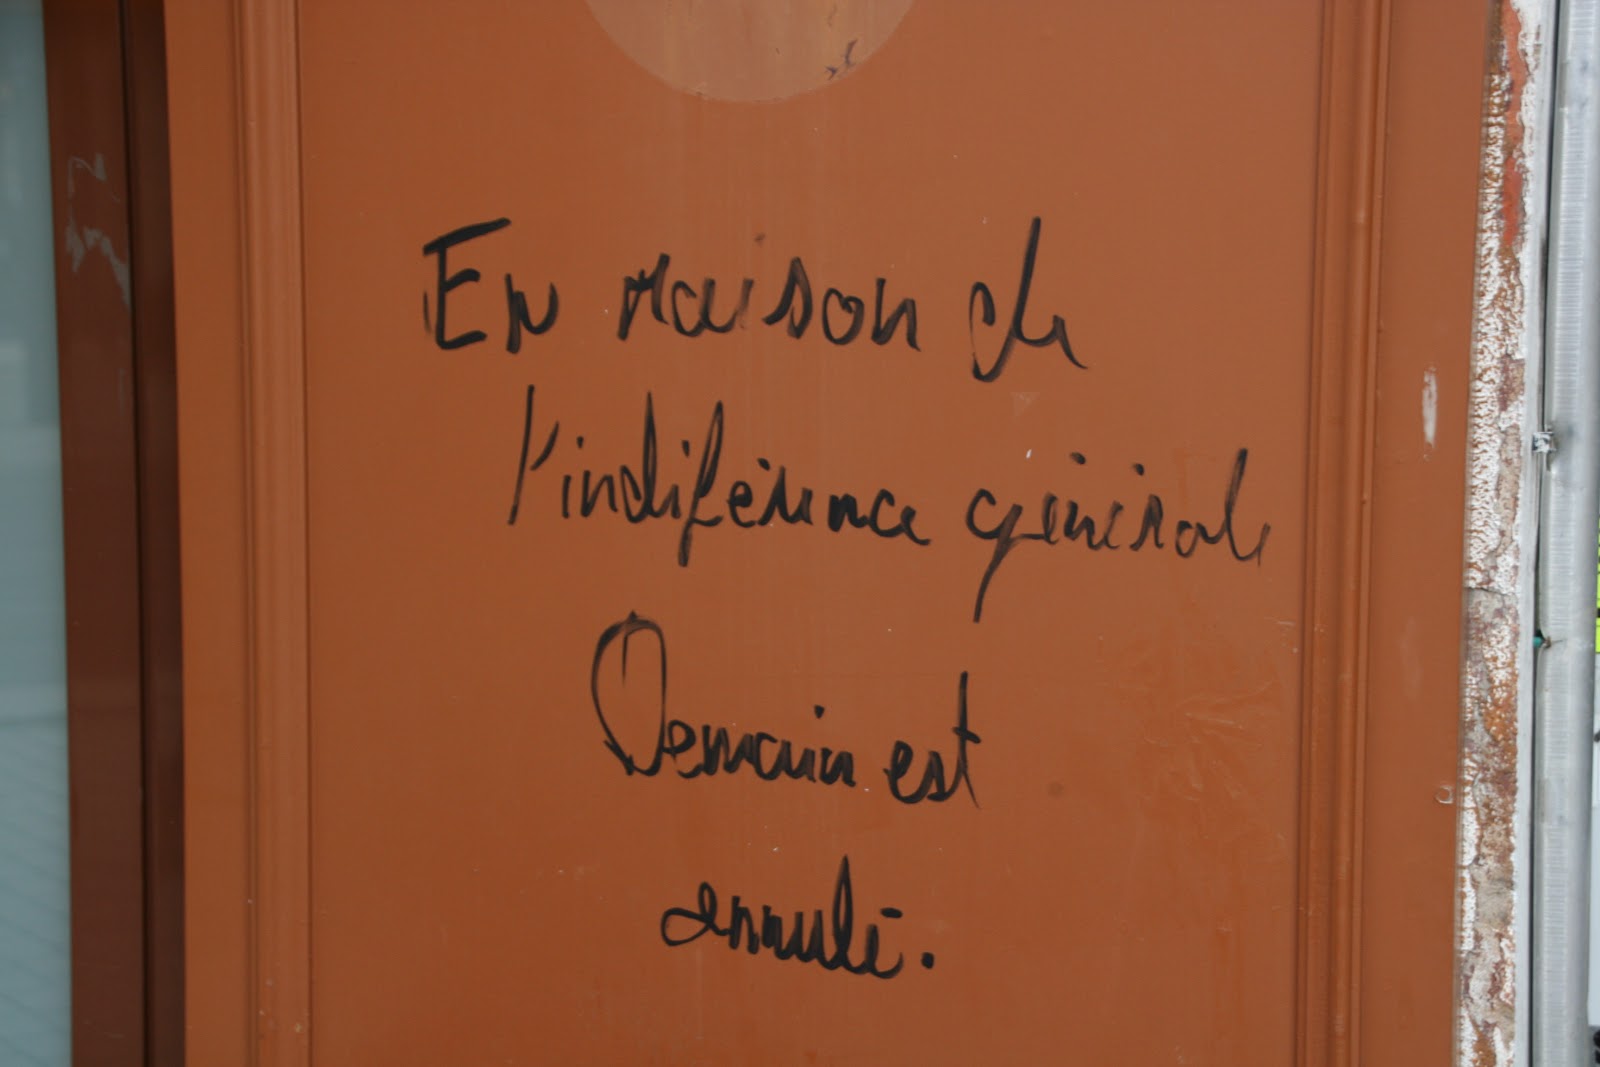 En raison de
l'indiférence générale
Demain est
annulé.